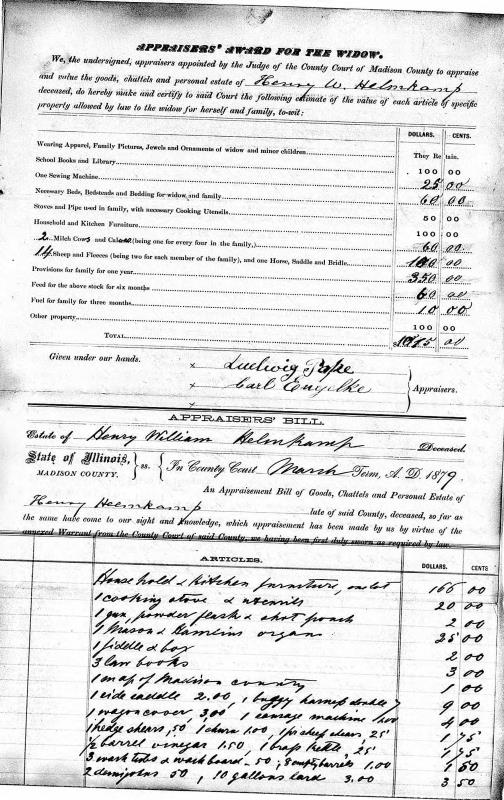 APPRAISERS' AWARD FOR THE WIDOW.
We, the undersigned, appraisers appointed by the Judge of the County Court of Madison County to appraise
and value the goods, chattels and personal estate of Henry W. Helmkamp
deceased, do hereby make and certify to said Court the following estimate of the value of each article of specific
property allowed by law to the widow for herself and family, to-wit:
DOLLARS. CENTS.
Wearing Apparel, Family Pictures, Jewels and Ornaments of widow and minor children They Retain.
School Books and Library 100 00
One Sewing Machine 25 00
Necessary Beds, Bedsteads and Bedding for widow and family 60 00
Stoves and Pipe used in family, with necessary Cooking Utensils 50 00
Household and Kitchen Furniture 100 00
2 Milch Cows and Calves (being one for every four in the family,) 60 00
14 Sheep and Fleeces (being two for each member of the family), and one Horse, Saddle and Bridle 100 00
Provisions for family for one year 350 00
Feed for the above stock for six months 60 00
Fuel for family for three months 10 00
Other property 100 00
TOTAL $1015 00
Given under our hands.
x Ludwig Pape
x Carl Engelke
x
Appraisers.
APPRAISERS' BILL.
Estate of Henry William Helmkamp Deceased.
State of Illinois, MADISON COUNTY. ss. In County Court March Term, A. D. 1879.
An Appraisement Bill of Goods, Chattels and Personal Estate of
Henry Helmkamp late of said County, deceased, so far as
the same have come to our sight and knowledge, which appraisement has been made by us by virtue of the
annexed Warrant from the County Court of said County, we having been first duly sworn as required by law.
ARTICLES. DOLLARS. CENTS
House hold & Kitchen furniture, one lot 166 00
1 cooking stove & utensils 20 00
1 gun, powder flask & shot pouch 2 00
1 Mason & Hamlins organ 25 00
1 fiddle & box 2 00
3 law books 3 00
1 map of Madison county 1 00
1 side saddle 2.00, 1 buggy harness double 7 9 00
1 wagon cover 3,00 1 sausage machine 1.00 4 00
1 hedge shears, 50, 1 churn 1.00, 1 pr sheep shears, 25 1 75
1/2 barrel vinegar 1.50, 1 brass kettle, 25 1 75
3 wash tubs & wash board - 50, 8 empty barrels 1.00 1 50
2 demijohns 50, 10 gallons lard 3.00 3 50